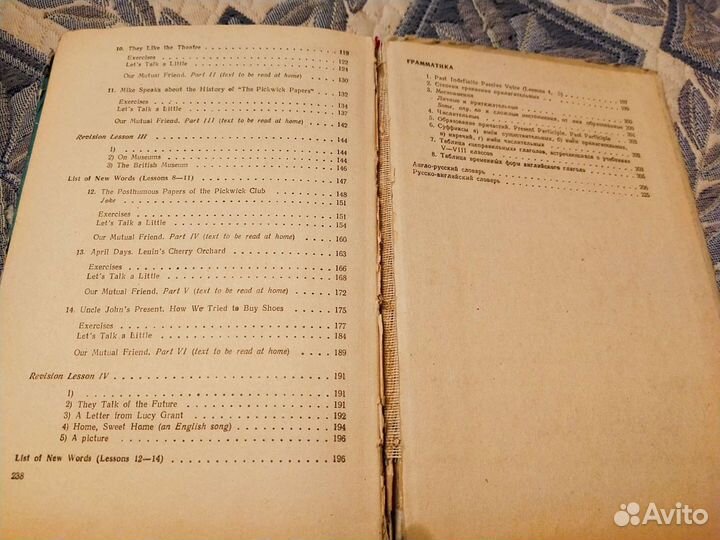 10. They Like the Theatre 119
Exercises 122
Let's Talk a Little 121
Our Mutual Friend. Part II (text to be read at home) 130
11. Mike Speaks about the History of "The Pickwick Papers" 132
Exercises 134
Let's Talk a Little 137
Our Mutual Friend. Part III (text to be read at home) 142
Revision Lesson III 144
1) 144
2) On Museums 144
3) The British Museum 146
List of New Words (Lessons 8—11) 147
12. The Posthumous Papers of the Pickwick Club 148
Joke 151
Exercises 151
Let's Talk a Little 154
Our Mutual Friend. Part IV (text to be read at home) 160
13. April Days. Lenin's Cherry Orchard 163
Exercises 166
Let's Talk a Little 168
Our Mutual Friend. Part V (text to be read at home) 172
14. Uncle John's Present. How We Tried to Buy Shoes 175
Exercises 177
Let's Talk a Little 184
Our Mutual Friend. Part VI (text to be read at home) 189
Revision Lesson IV 191
1) 191
2) They Talk of the Future 191
3) A Letter from Lucy Grant 192
4) Home, Sweet Home (an English song) 194
5) A picture 196
List of New Words (Lessons 12—14) 196
238
ГРАММАТИКА
1. Past Indefinite Passive Voice (Lessons 4, 5) 197
2. Степени сравнения прилагательных
3. Местоимения 199
Личные и притяжательные
4. Числительные 200
5. Образование причастий. Present Participle. Past Participle
6. Суффиксы а) имён существительных, б) имён прилагательных,
в) наречий, г) имён числительных
7. Таблица неправильных глаголов, встречающихся в учебниках
V—VIII классов
8. Таблица временных форм английского глагола
Англо-русский словарь 206
Русско-английский словарь 225
Avito